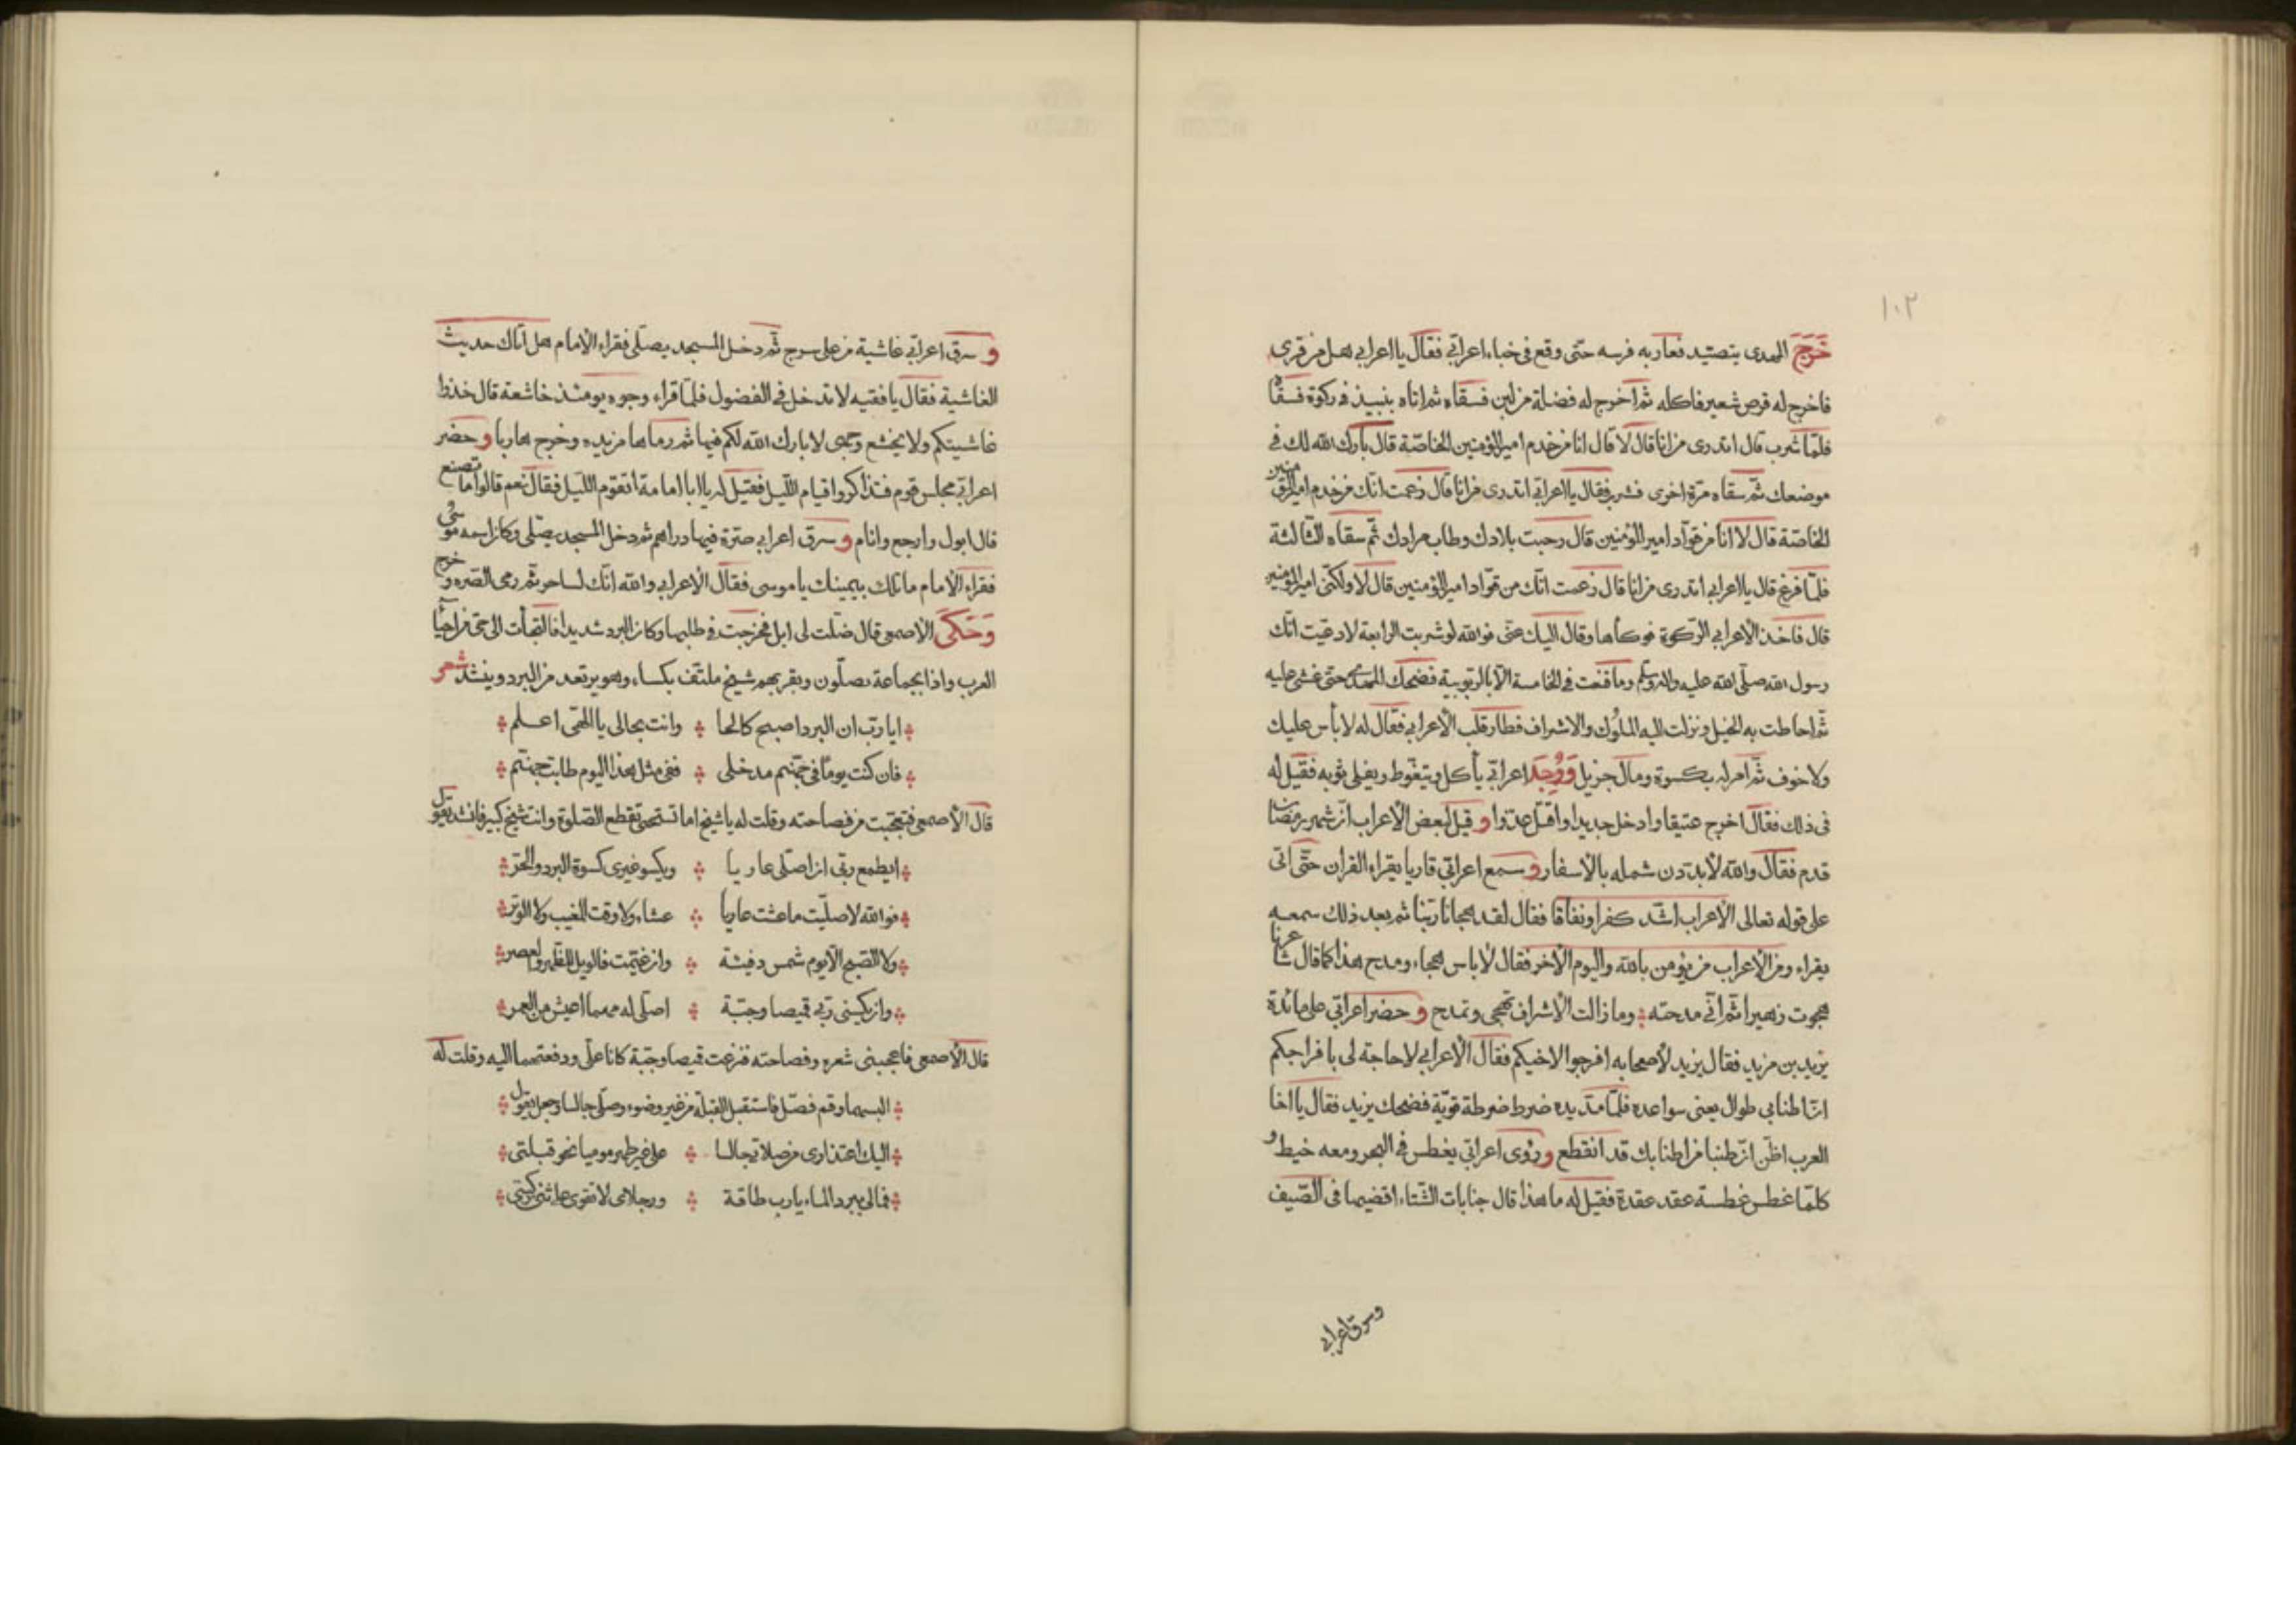 ١٠٢
خَرَجَ المهدى يتصيد فغار به فرسه حتى وقع فى خباء اعرابى فقال يا اعرابى هل من قرى
فاخرج له قرص شعير فاكله ثم اخرج له فضلة من لبن فسقاه ثم اتاه بنبيذ فى ركوة فسقاه
فلمّا شرب قال اتدرى من انا قال لا قال انا من خدم امير المؤمنين الخاصّة قال بارك الله لك فى
موضعك ثمّ سقاه مرّة اخرى فشرب فقال يا اعرابى اتدرى من انا قال زعمت انّك من خدم امير المؤمنين
الخاصّة قال لا انا من قوّاد امير المؤمنين قال رحبت بلادك وطاب مرادك ثمّ سقاه الثّالثة
فلمّا فرغ قال يا اعرابى اتدرى من انا قال زعمت انّك من قوّاد امير المؤمنين قال لا ولكنّى امير المؤمنين
قال فاخذ الاعرابى الرّكوة فوكأها وقال اليك عنّى فوالله لو شربت الرابعة لادعيت انّك
رسول الله صلّى الله عليه واله وسلّم وما قنعت فى الخامسة الّا بالربوبية فضحك المهدى حتى غشى عليه
ثمّ احاطت به الخيل ونزلت اليه الملوك والاشراف فطار قلب الاعرابى فقال له لا بأس عليك
ولا خوف ثم امر له بكسوة ومال جزيل وَوُجِدَ اعرابى يأكل ويتغوط ويفلى ثوبه فقيل له
فى ذلك فقال اخرج عتيقا وادخل جديدا واقتل عدّوا و قيل لبعض الأعراب انّ شهر رمضان
قدم فقال والله لأبدّدن شمله بالاسفار و سمع اعرابى قاريا يقراء القران حتّى اتى
على قوله تعالى الاعراب اشدّ كفرا ونفاقا فقال لقد هجانا ربّنا ثم بعد ذلك سمعه
يقراء ومن الاعراب من يؤمن بالله واليوم الآخر فقال لا باس هجاء ومدح هذا كما قال شاعرنا
هجوت زهيرا ثم انّى مدحته وما زالت الاشراف تهجى وتمدح و حضر اعرابى على مائدة
يزيد بن مزيد فقال يزيد لأصحابه افرجوا لاخيكم فقال الاعرابى لا حاجة لى بافراجكم
انّ اطنابى طوال يعنى سواعده فلمّا مدّ يده ضرط ضرطة قويّة فضحك يزيد فقال يا اخا
العرب اظنّ انّ طنبا من اطنابك قد انقطع و رؤى اعرابى يغطس فى البحر ومعه خيط و
كلمّا غطس غطسة عقد عقدة فقيل له ما هذا قال جنابات الشّتاء اقضيها فى الصّيف
وسرق اعرابى
و سرق اعرابى غاشية من على سرج ثم دخل المسجد يصلّى فقراء الامام هل اتاك حديث
الغاشية فقال يا فقيه لا تدخل فى الفضول فلمّا قراء وجوه يومئذ خاشعة قال خذوا
غاشيتكم ولا يخشع وجهى لا بارك الله لكم فيها ثم رماها من يده وخرج هاربا و حضر
اعرابى مجلس قوم فتذاكروا قيام اللّيل فقيل له يا ابا امامة اتقوم اللّيل فقال نعم قالوا ما تصنع
قال ابول وارجع وانام و سرق اعرابى صرّة فيها دراهم ثم دخل المسجد يصلّى وكان اسمه موسى
فقراء الامام ما تلك بيمينك يا موسى فقال الاعرابى والله انّك لساحر ثم رمى الصّره وخرج
وَحَكَى الاصمعى قال ضلّت لى ابل فخرجت فى طلبها وكان البرد شديدا فالتجأت الى حى من احيا
العرب واذا بجماعة يصلّون وبقربهم شيخ ملتفّ بكساء وهو يرتعد من البرد وينشد شعر
ايا ربّ ان البرد اصبح كالحا وانت بحالى يا الهى اعلم
فان كنت يومًا فى جهنّم مدخلى ففى مثل هذا اليوم طابت جهنّم
قال الأصمعى فتعجّبت من فصاحته وقلت له يا شيخ اما تستحى تقطع الصّلوة وانت شيخ كبير فانشد يقول
ايطمع ربّى ان اصلّى عاريا ويكسو غيرى كسوة البرد والحرّ
فوالله لا صلّيت ما عشت عاريا عشاء ولا وقت المغيب ولا الوتر
ولا الصّبح الّا يوم شمس دفيئة وان غيّمت فالويل للظهر والعصر
وان يكسنى ربّى قميصا وجبّة اصلّى له مهما اعيش من العمر
قال الأصمعى فاعجبنى شعره وفصاحته فنزعت قميصا وجبّة كانا علّى ودفعتهما اليه وقلت له
البسهما وقم فصّل فاستقبل القبلة من غير وضوء وصلّى جالسا وجعل يقول
اليك اعتذارى من صلاتى جالسا على غير طهر موميا نحو قبلتى
فمالى ببرد الماء يا رب طاقة ورجلاى لا تقوى على ثنى ركبتى